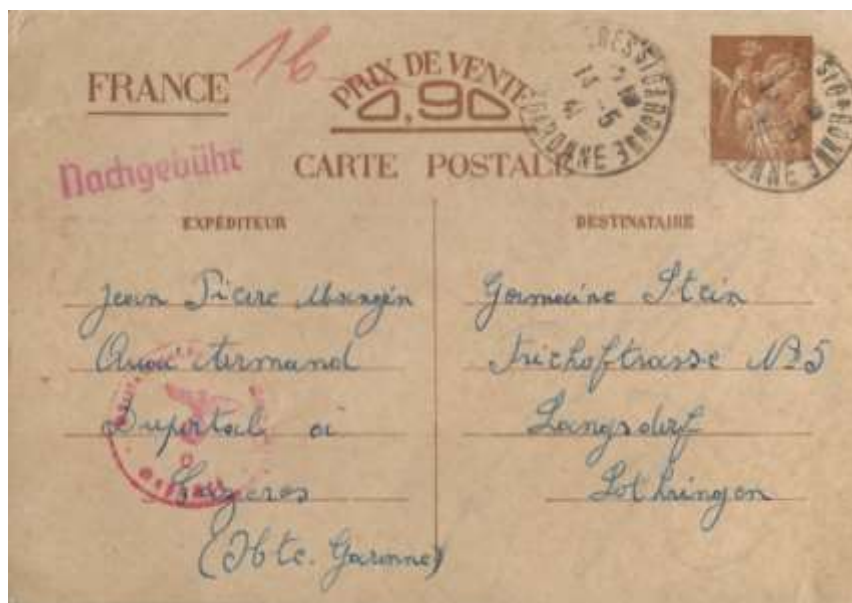 FRANCE
16
PRIX DE VENTE
0,90
Nachgebühr
CARTE POSTALE
EXPÉDITEUR
Jean Pierre Mangin
Armand
Duportal à
Cazères
(Hte. Garonne)
DESTINATAIRE
Germaine Stein
N° 5
Langsdorf
Lothringen
GARONNE